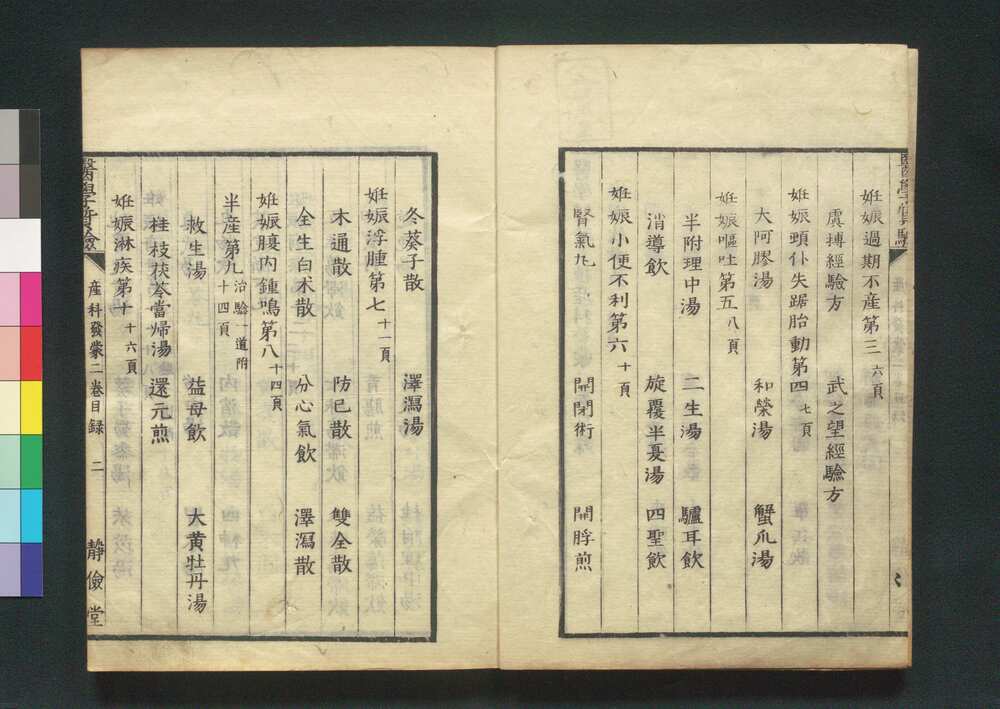 妊娠過期不産第三 六頁
虞摶經驗方 武之望經驗方
妊娠頭仆失踞胎動第四 七頁
大阿膠湯 和榮湯 蟹爪湯
妊娠嘔吐第五 八頁
半附理中湯 二生湯 驢耳飲
消導飲 旋覆半夏湯 四聖飲
妊娠小便不利第六 十頁
腎氣丸 開閉術 開脬煎
冬葵子散 澤瀉湯
妊娠浮腫第七 十一頁
木通散 防已散 雙全散
全生白朮散 分心氣飲 澤瀉散
妊娠腹内鍾鳴第八 十四頁
半産第九 治驗一道附 十四頁
救生湯 益母飲 大黄牡丹湯
桂枝茯苓當帰湯 還元煎
妊娠淋疾第十 十六頁
醫學質驗 産科發蒙二卷目録 二 靜儉堂